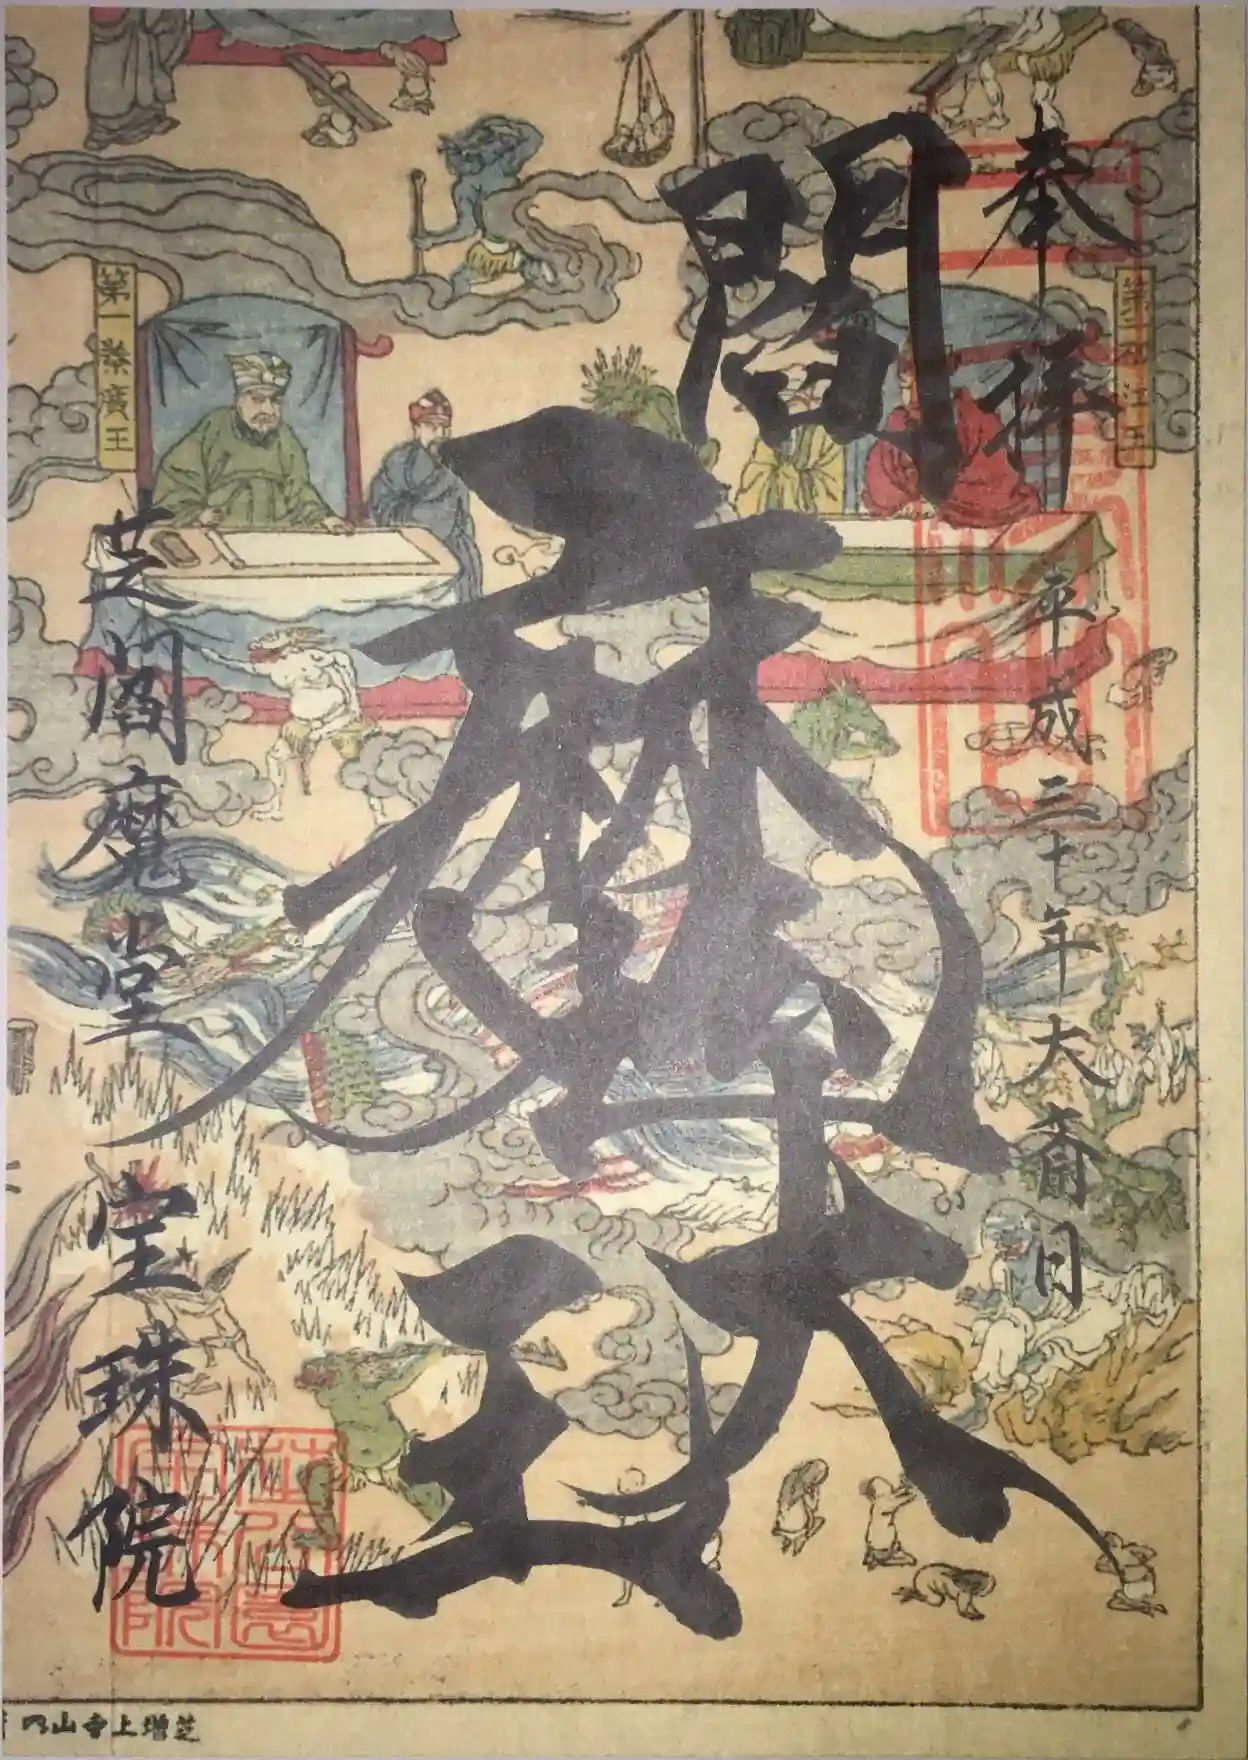 奉拝
平成三十年大斎日
閻魔大王
第一秦廣王
芝閻魔堂
宝珠院
芝増上寺山内